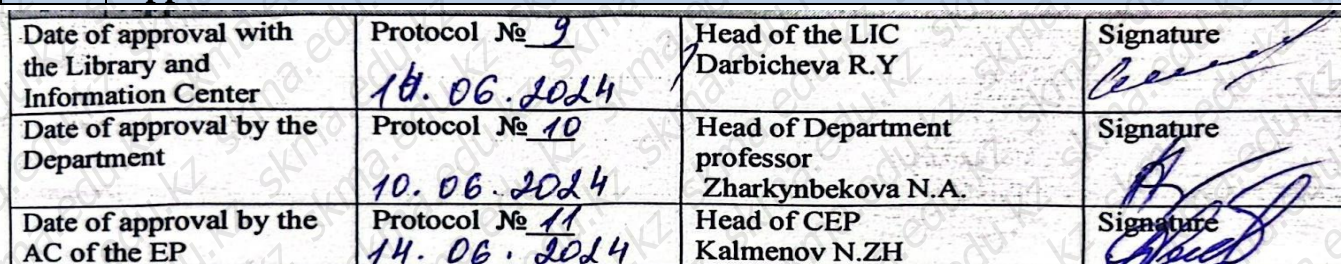 Date of approval with
the Library and
Information Center
Protocol № 9
.06.2024
Head of the LIC
Darbicheva R.Y
Signature
Date of approval by the
Department
Protocol № 10
10.06.2024
Head of Department
professor
Zharkynbekova N.A.
Signature
Date of approval by the
AC of the EP
Protocol № 11
14.06.2024
Head of CEP
Kalmenov N.ZH
Signature